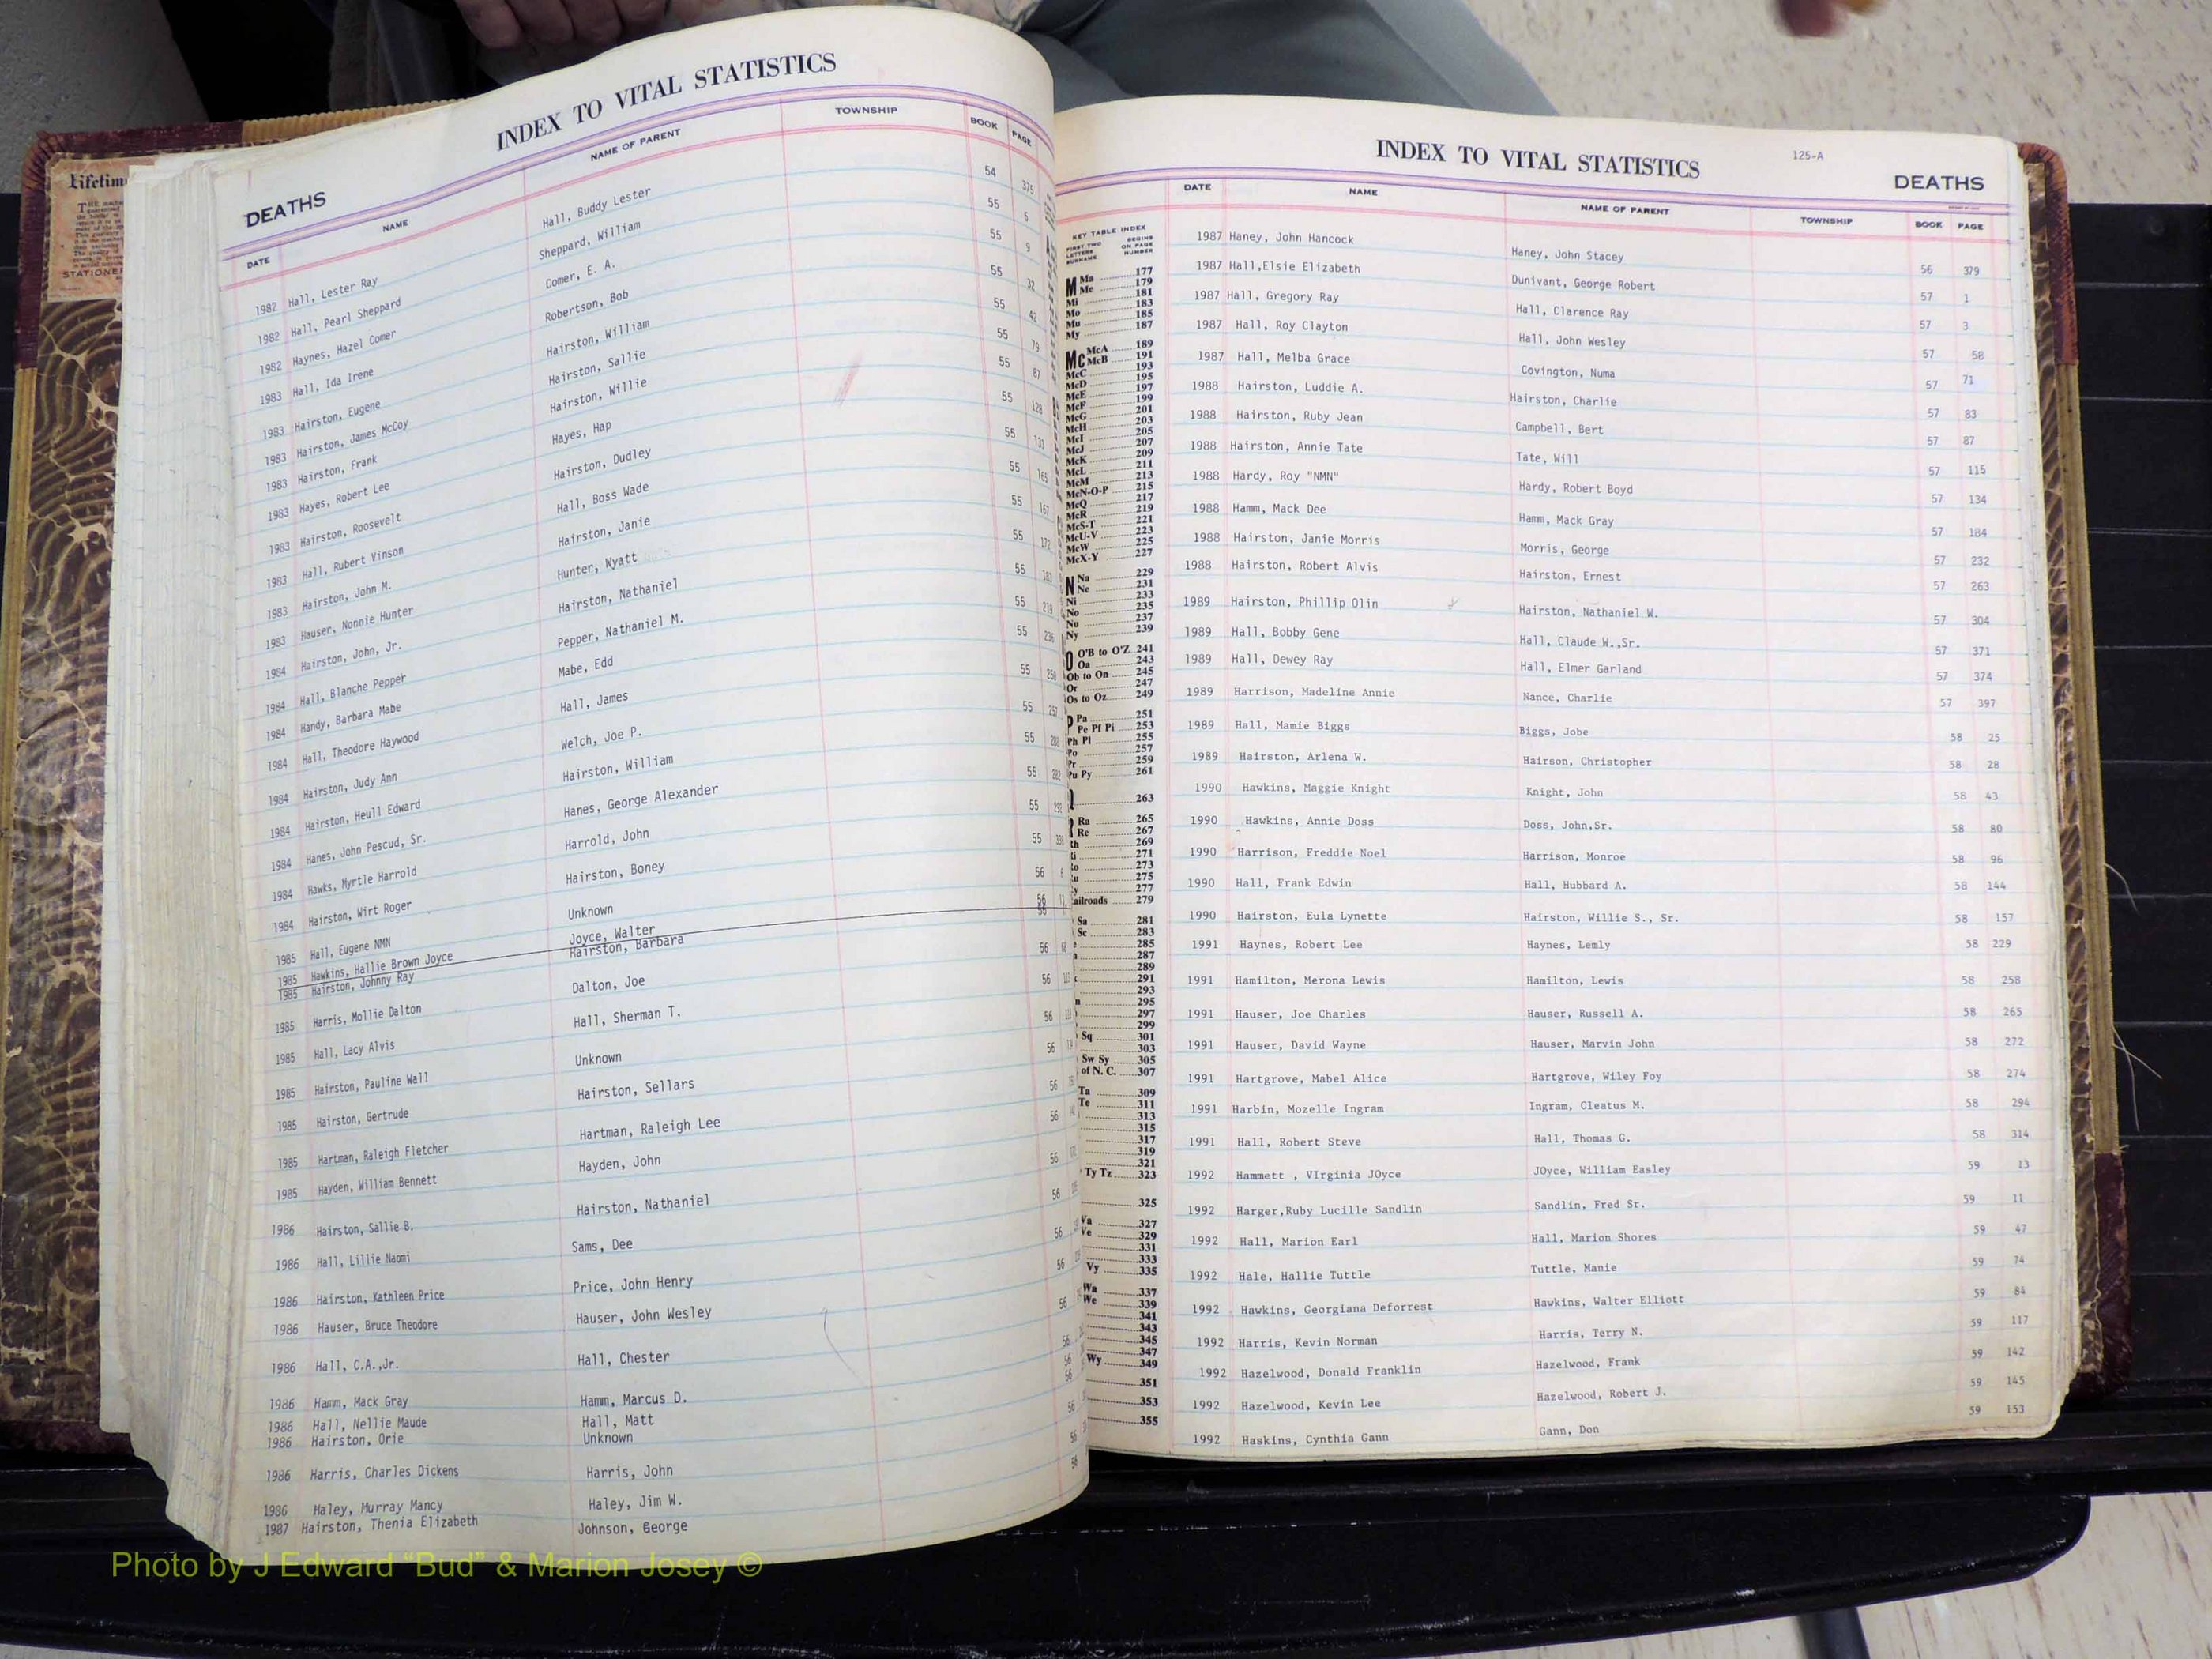 Lifetim
THE
STATIONE
INDEX TO VITAL STATISTICS
DEATHS
DATE NAME NAME OF PARENT TOWNSHIP BOOK PAGE
1982 Hall, Lester Ray Hall, Buddy Lester 54 375
1982 Hall, Pearl Sheppard Sheppard, William 55 6
1982 Haynes, Hazel Comer Comer, E. A. 55 9
1983 Hall, Ida Irene Robertson, Bob 55 32
1983 Hairston, Eugene Hairston, William 55 42
1983 Hairston, James McCoy Hairston, Sallie 55 79
1983 Hairston, Frank Hairston, Willie 55 87
1983 Hayes, Robert Lee Hayes, Hap 55 128
1983 Hairston, Roosevelt Hairston, Dudley 55 133
1983 Hall, Rubert Vinson Hall, Boss Wade 55 165
1983 Hairston, John M. Hairston, Janie 55 167
1983 Hauser, Nonnie Hunter Hunter, Wyatt 55 172
1984 Hairston, John, Jr. Hairston, Nathaniel 55 183
1984 Hall, Blanche Pepper Pepper, Nathaniel M. 55 219
1984 Handy, Barbara Mabe Mabe, Edd 55 236
1984 Hall, Theodore Haywood Hall, James 55 250
1984 Hairston, Judy Ann Welch, Joe P. 55 257
1984 Hairston, Heull Edward Hairston, William 55
1984 Hanes, John Pescud, Sr. Hanes, George Alexander 55 282
1984 Hawks, Myrtle Harrold Harrold, John 55 292
1984 Hairston, Wirt Roger Hairston, Boney 55
1985 Hall, Eugene NMN Unknown 56
1985 Hawkins, Hallie Brown Joyce Joyce, Walter 56
1985 Hairston, Johnny Ray Hairston, Barbara 56
1985 Harris, Mollie Dalton Dalton, Joe 56
1985 Hall, Lacy Alvis Hall, Sherman T. 56
1985 Hairston, Pauline Wall Unknown 56
1985 Hairston, Gertrude Hairston, Sellars 56
1985 Hartman, Raleigh Fletcher Hartman, Raleigh Lee 56
1985 Hayden, William Bennett Hayden, John 56
1986 Hairston, Sallie B. Hairston, Nathaniel 56
1986 Hall, Lillie Naomi Sams, Dee 56
1986 Hairston, Kathleen Price Price, John Henry 56
1986 Hauser, Bruce Theodore Hauser, John Wesley 56
1986 Hall, C.A.,Jr. Hall, Chester 56
1986 Hamm, Mack Gray Hamm, Marcus D. 56
1986 Hall, Nellie Maude Hall, Matt 56
1986 Hairston, Orie Unknown 56
1986 Harris, Charles Dickens Harris, John 56
1986 Haley, Murray Mancy Haley, Jim W. 56
1987 Hairston, Thenia Elizabeth Johnson, George 56
KEY TABLE INDEX
FIRST TWO LETTERS SURNAME BEGINS ON PAGE NUMBER
M Ma 177
Me 179
Mi 181
Mo 183
Mu 185
My 187
Mc McA 189
McB 191
McC 193
McD 195
McE 197
McF 199
McG 201
McH 203
McI 205
McJ 207
McK 209
McL 211
McM 213
McN-O-P 215
McQ 217
McR 219
McS-T 221
McU-V 223
McW 225
McX-Y 227
N Na 229
Ne 231
Ni 233
No 235
Nu 237
Ny 239
O O'B to O'Z 241
Oa 243
Ob to On 245
Or 247
Os to Oz 249
P Pa 251
Pe Pf Pi 253
Ph Pl 255
Po 257
Pr 259
Pu Py 261
263
Ra 265
Re 267
269
271
273
275
277
ailroads 279
Sa 281
Sc 283
285
287
289
291
293
295
297
299
Sq 301
303
Sw Sy 305
of N. C. 307
Ta 309
Te 311
313
315
317
319
321
Ty Tz 323
325
Va 327
Ve 329
331
333
Vy 335
Wa 337
We 339
341
343
345
347
Wy 349
351
353
355
INDEX TO VITAL STATISTICS
125-A
DEATHS
DATE NAME NAME OF PARENT TOWNSHIP BOOK PAGE
1987 Haney, John Hancock Haney, John Stacey 56 379
1987 Hall,Elsie Elizabeth Dunivant, George Robert 57 1
1987 Hall, Gregory Ray Hall, Clarence Ray 57 3
1987 Hall, Roy Clayton Hall, John Wesley 57 58
1987 Hall, Melba Grace Covington, Numa 57 71
1988 Hairston, Luddie A. Hairston, Charlie 57 83
1988 Hairston, Ruby Jean Campbell, Bert 57 87
1988 Hairston, Annie Tate Tate, Will 57 115
1988 Hardy, Roy "NMN" Hardy, Robert Boyd 57 134
1988 Hamm, Mack Dee Hamm, Mack Gray 57 184
1988 Hairston, Janie Morris Morris, George 57 232
1988 Hairston, Robert Alvis Hairston, Ernest 57 263
1989 Hairston, Phillip Olin Hairston, Nathaniel W. 57 304
1989 Hall, Bobby Gene Hall, Claude W.,Sr. 57 371
1989 Hall, Dewey Ray Hall, Elmer Garland 57 374
1989 Harrison, Madeline Annie Nance, Charlie 57 397
1989 Hall, Mamie Biggs Biggs, Jobe 58 25
1989 Hairston, Arlena W. Hairson, Christopher 58 28
1990 Hawkins, Maggie Knight Knight, John 58 43
1990 Hawkins, Annie Doss Doss, John,Sr. 58 80
1990 Harrison, Freddie Noel Harrison, Monroe 58 96
1990 Hall, Frank Edwin Hall, Hubbard A. 58 144
1990 Hairston, Eula Lynette Hairston, Willie S., Sr. 58 157
1991 Haynes, Robert Lee Haynes, Lemly 58 229
1991 Hamilton, Merona Lewis Hamilton, Lewis 58 258
1991 Hauser, Joe Charles Hauser, Russell A. 58 265
1991 Hauser, David Wayne Hauser, Marvin John 58 272
1991 Hartgrove, Mabel Alice Hartgrove, Wiley Foy 58 274
1991 Harbin, Mozelle Ingram Ingram, Cleatus M. 58 294
1991 Hall, Robert Steve Hall, Thomas G. 58 314
1992 Hammett , VIrginia JOyce JOyce, William Easley 59 13
1992 Harger,Ruby Lucille Sandlin Sandlin, Fred Sr. 59 11
1992 Hall, Marion Earl Hall, Marion Shores 59 47
1992 Hale, Hallie Tuttle Tuttle, Manie 59 74
1992 Hawkins, Georgiana Deforrest Hawkins, Walter Elliott 59 84
1992 Harris, Kevin Norman Harris, Terry N. 59 117
1992 Hazelwood, Donald Franklin Hazelwood, Frank 59 142
1992 Hazelwood, Kevin Lee Hazelwood, Robert J. 59 145
1992 Haskins, Cynthia Gann Gann, Don 59 153
Photo by J Edward “Bud” & Marion Josey ©